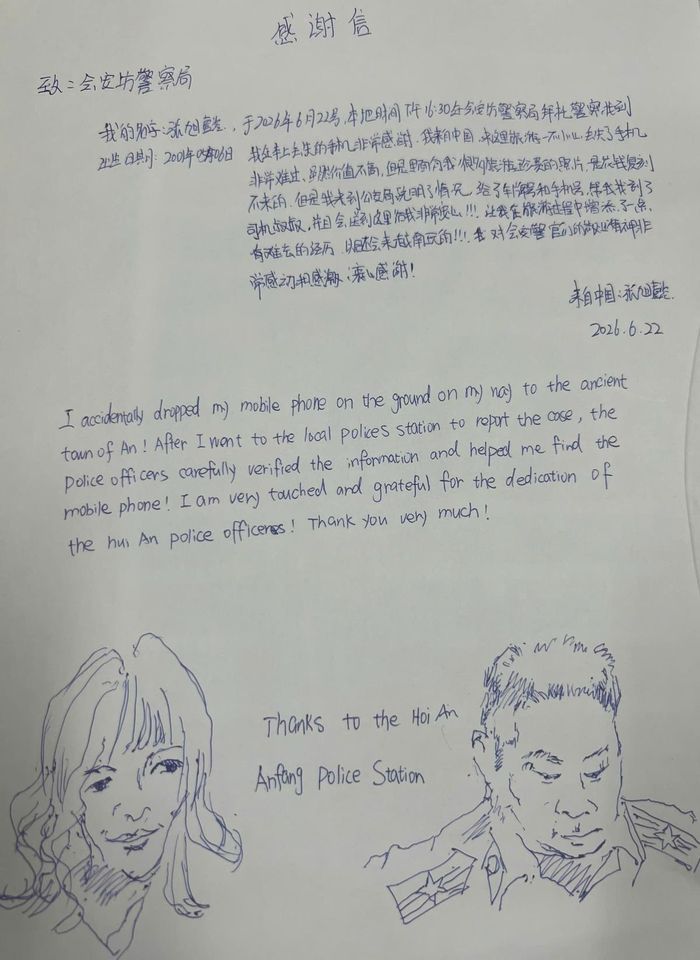 感谢信
致：会安坊警察局
我的名字：张旭
于2026年6月22号，本地时间下午16:30在会安坊警察局拜托警察找到
出生日期：2001年05月06日
我在车上丢失的手机非常感谢．我来自中国．来这里旅游一不小心丢失了手机
非常难过．虽然价值不高，但是里面有我旅游珍贵的照片，是
不来的．但是我来到公安局说明了情况．给了车牌号和手机号，帮我找到了
司机叔叔，并且会送到这里给我非常安心!!!．让我在旅游过程中增添了一
有难忘的经历 以后还会来越南玩的!!!．我对会安警官们的
常感动和感激．衷心感谢！
来自中国：张旭
2026.6.22
I accidentally dropped my mobile phone on the ground on my nay to the ancient
town of An! After I want to the local polices station to report the case, the
police officers carefully verified the information and helped me find the
mobile phone! I am very touched and grateful for the dedication of
the hui An police officeres! Thank you very much!
Thanks to the Hoi An
Anfang Police Station